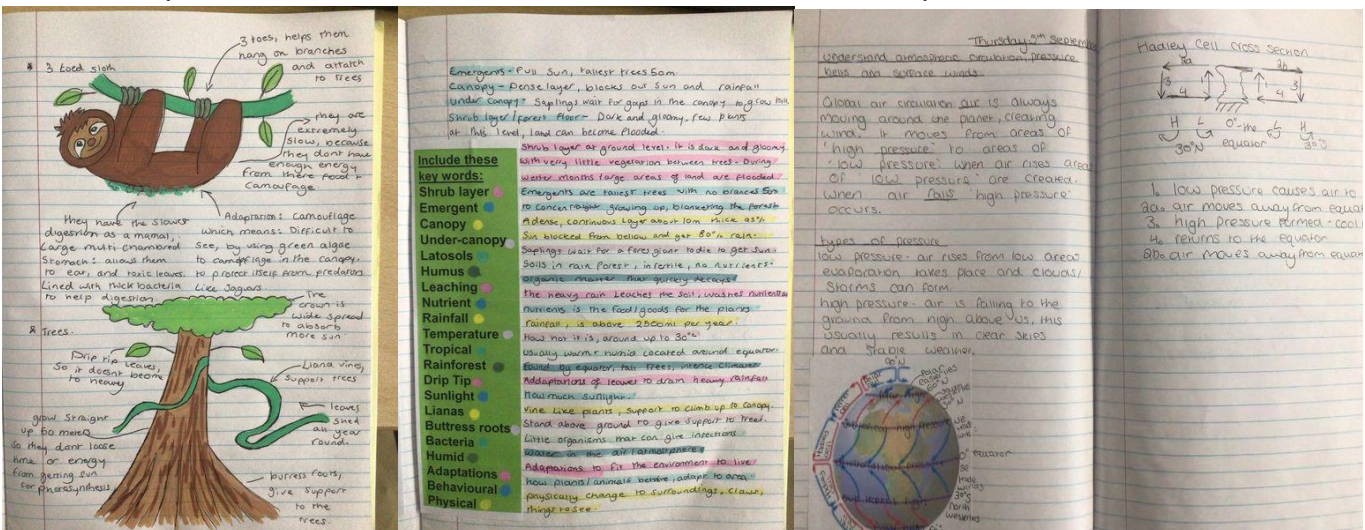 3 toes, helps them
hang on branches
and attatch
to trees
3 toed sloth
they are
extremely
slow, because
they dont have
enough energy
from there food +
camouflage
they have the slower
digestion as a mamal,
large multi chambered
Stomach: allows them
to ear, and toxic leaves.
Lined with thick bacteria
to help digestion.
Adaptation: camouflage
which means: Difficult to
see, by using green algae
to camoflage in the canopy.
to protect itself from predators
like Jaguars.
The
crown is
wide spread
to absorb
more sun
Trees.
Drip tip leaves,
So it doesnt become
to heavy
Liana vines,
support trees
leaves
shed
all year
round.
grow straight
up 60 meters
so they dont loose
time or energy
from getting sun
for photosynthesis
burress roots,
give support
to the
trees.
Emergents - Full Sun, tallest trees 50m
Canopy - Dense layer, blocks out sun and rainfall
under canopy - Saplings wait for gaps in the canopy to grow tall.
Shrub layer/forest floor - Dark and gloomy, few plants
at this level, land can become flooded.
Include these
key words:
Shrub layer
Emergent
Canopy
Under-canopy
Latosols
Humus
Leaching
Nutrient
Rainfall
Temperature
Tropical
Rainforest
Drip Tip
Sunlight
Lianas
Buttress roots
Bacteria
Humid
Adaptations
Behavioural
Physical
Shrub layer at ground level. It is dark and gloomy
with very little vegetation between trees - During
wetter months large areas of land are flooded.
Emergents are tallest trees with no brances 50m
to concentrate growing up, blanketing the forest
A dense, continuous layer about 10m thick
Sun blocked from bellow and get 80% rain.
Saplings wait for a forest giant to die to get sun.
Soils in rain forest, infertile, no nutrients.
organic matter that quickly decays
the heavy rain leaches the soil, washes nutrients
nutrients is the food/goods for the plants
rainfall, is above 2500ml per year.
how hot it is, around up to 30°c
usually warm + humid located around equator
found by equator, tall trees, intence climate
Addaptations of leaves to drain heavy rainfall
How much sunlight.
Vine like plants, support to climb up to canopy.
Stand above ground to give support to trees.
Little organisms that can give infections
water in the air/atmosphere
Adaptations to fit the environment to live
how plants/animals behave, adapt to area
physically change to surroundings, claws,
things to see.
Thursday 9th September
Understand atmospheric circulation, pressure
belts and surface winds.
Global air circulation air is always
moving around the planet, creating
wind. It moves from areas of
'high pressure' to areas of
'low pressure'. when air rises areas
of 'low pressure' are created.
when air falls 'high pressure'
occurs.
types of pressure
low pressure - air rises from low areas
evaporation takes place and clouds/
storms can form.
high pressure - air is falling to the
ground from high above us, this
usually results in clear skies
and stable weather.
90°N
0° equator
Hadley Cell cross section
2a
2b
3
1
1
3
4
4
H
L
0° - the
L
H
30°N
equator
30°S
1. low pressure causes air to
2a. air moves away from equa
3. high pressure formed - cool
4. returns to the equator
2b. air moves away from equat